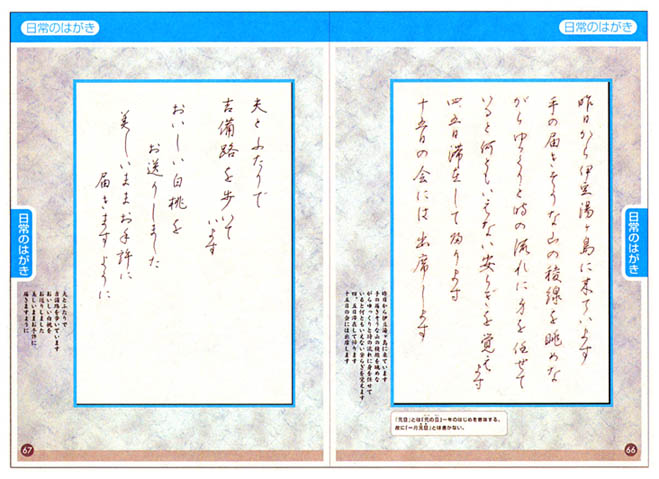 日常のはがき
昨日から伊豆湯ヶ島に来ています
手の届きそうな山の稜線を眺めな
がらゆっくりと時の流れに身を任せて
いると何ともいえない安らぎを覚えます
四五日滞在して帰ります
十五日の会には出席します
日常のはがき
昨日から伊豆湯ヶ島に来ています
手の届きそうな山の稜線を眺めな
がらゆっくりと時の流れに身を任せて
いると何ともいえない安らぎを覚えます
四、五日滞在して帰ります
十五日の会には出席します
「元旦」とは「元の旦」一年のはじめを意味する。
故に「一月元旦」とは書かない。
66
日常のはがき
夫とふたりで
吉備路を歩いています
おいしい白桃を
お送りしました
美しいままお手許に
届きますように
日常のはがき
夫とふたりで
吉備路を歩いています
おいしい白桃を
お送りしました
美しいままお手許に
届きますように
67